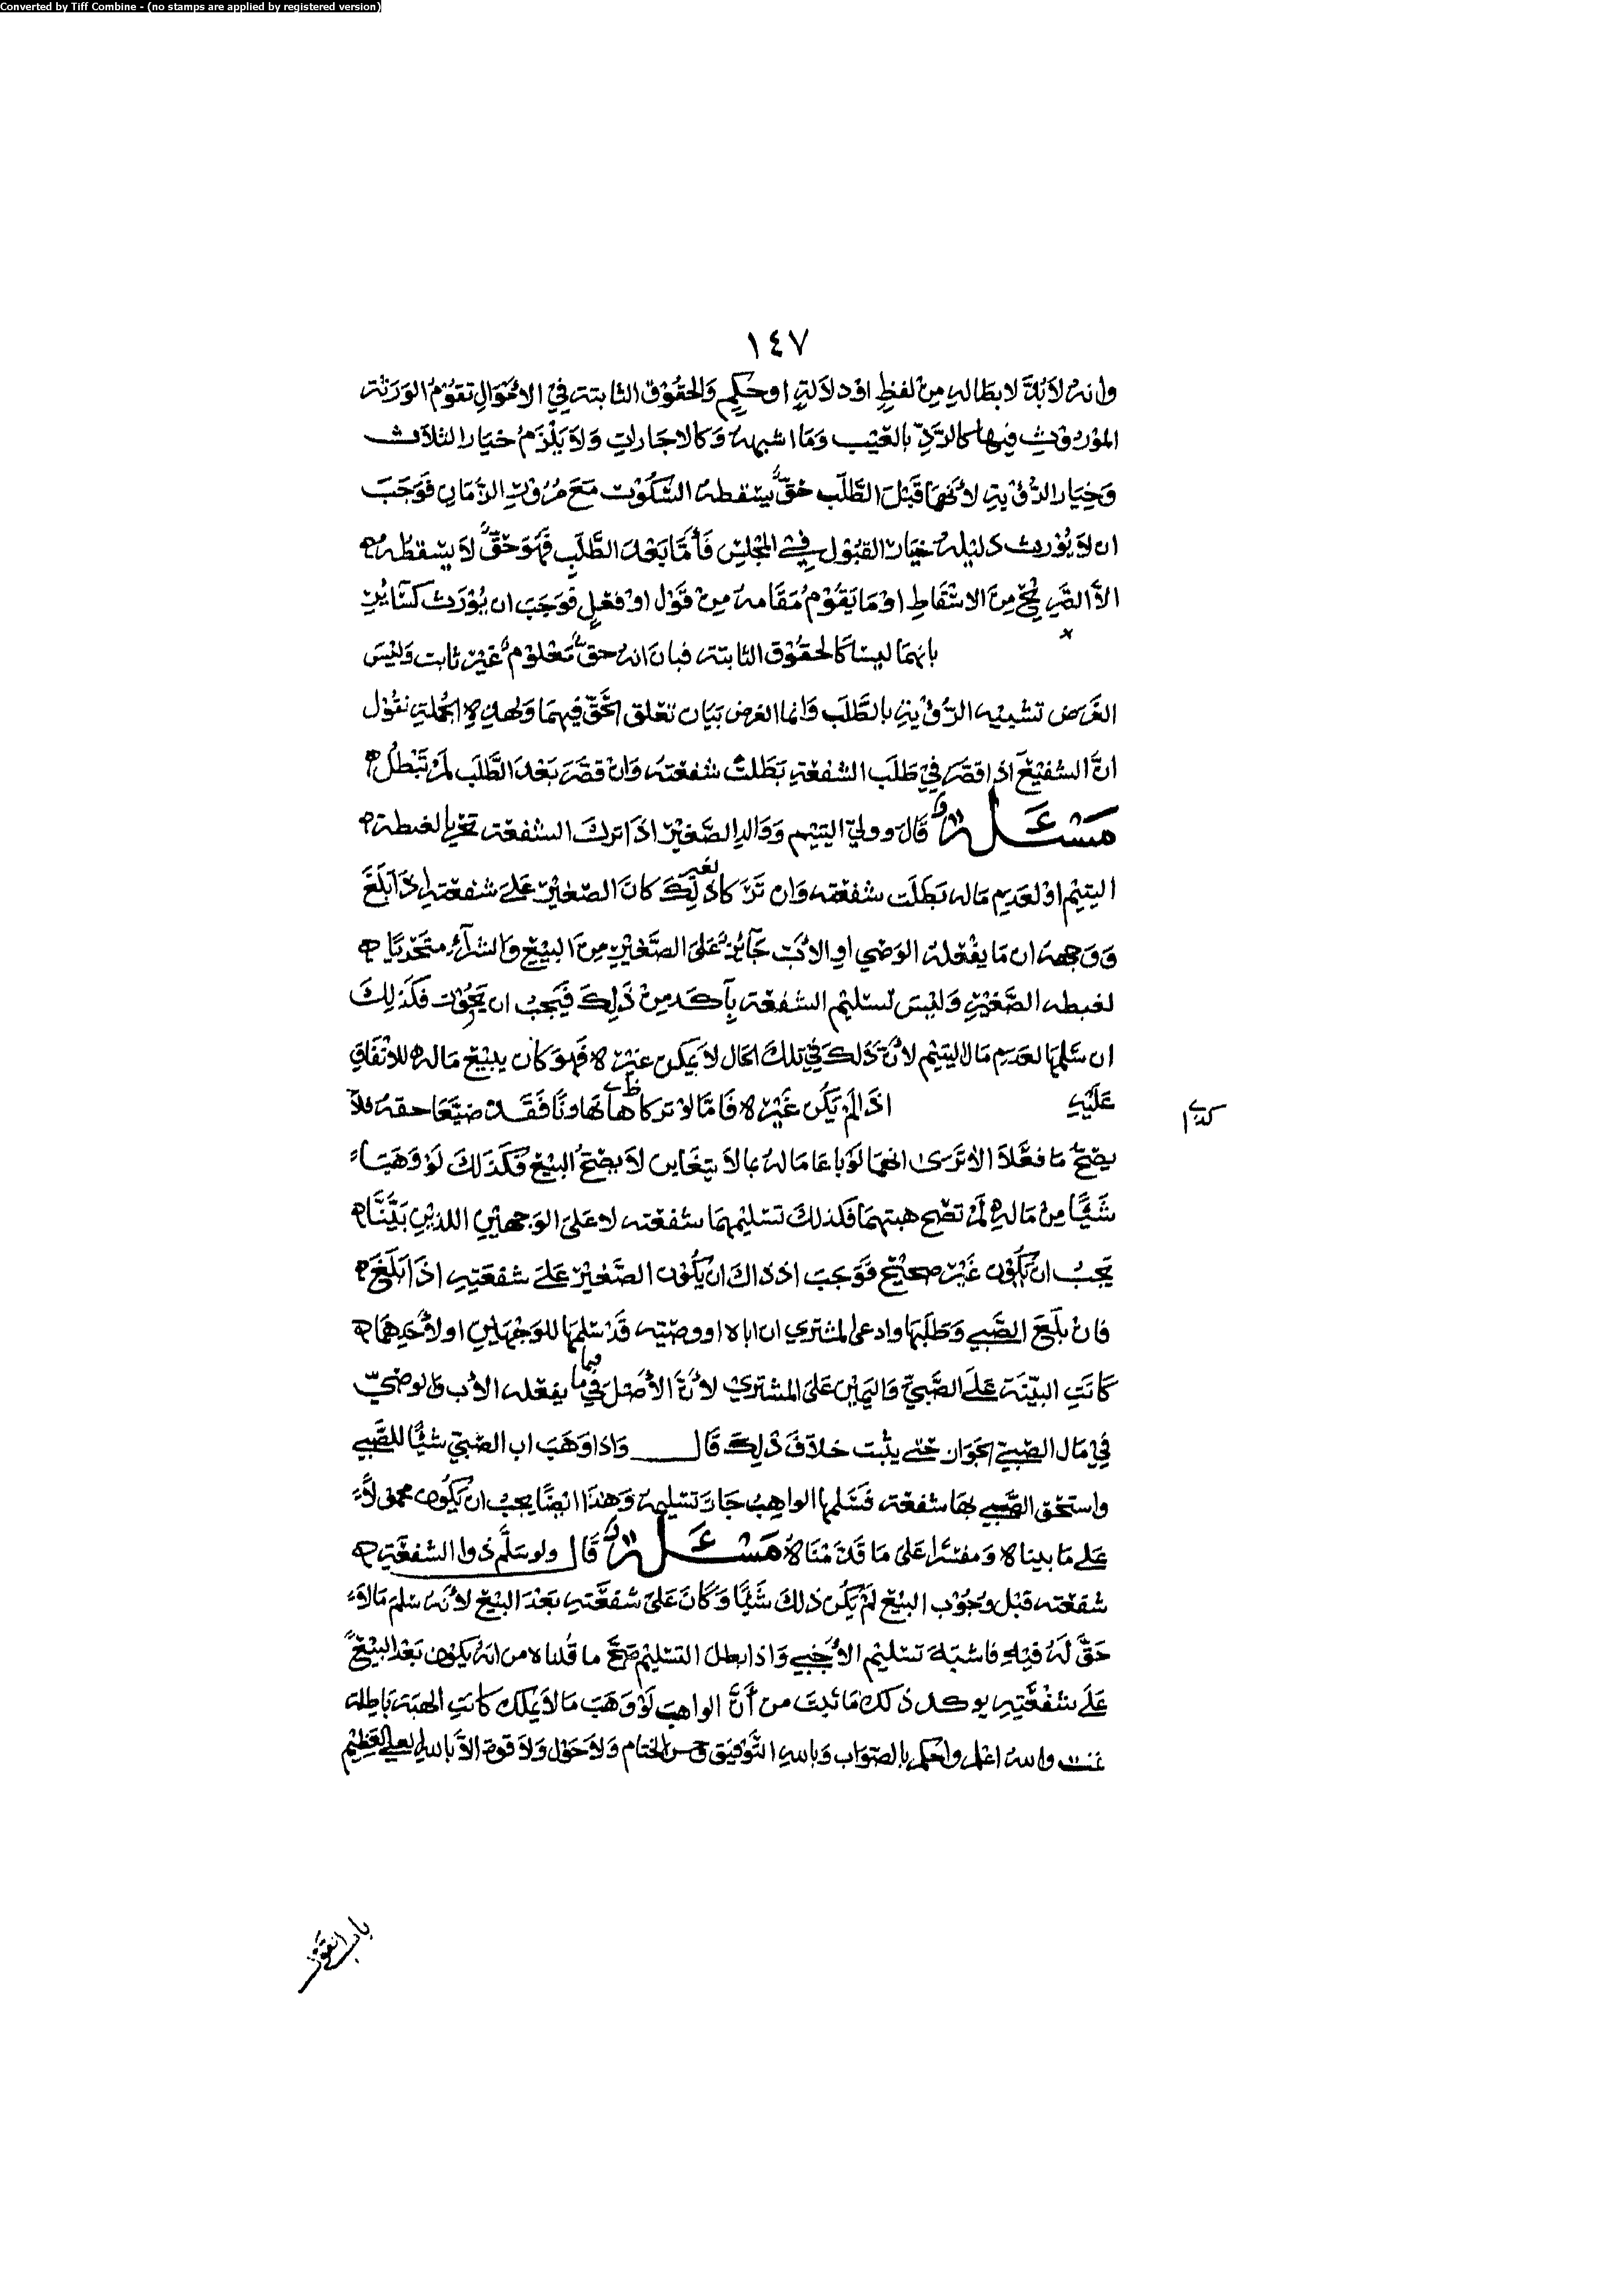 Converted by Tiff Combine - (no stamps are applied by registered version)
١٤٧
وانه لا بد لابطاله من لفظ او دلالة او حكم والحقوق الثابتة في الأموال تقوم الورثة
الموروث فيها كالرد بالعيب وما اشبهه وكالاجارات ولا يلزم خيار الثلاث
وخيار الرؤية لأنها قبل الطلب حق يسقطه السكوت مع مرور الزمان فوجب
ان لا يورث دليله خيار القبول في المجلس فأما بعد الطلب فهو حق لا يسقطه
الا الصريح من الاسقاط او ما يقوم مقامه من قول او فعل فوجب ان يورث كسائر
بانهما ليسا كالحقوق الثابتة فبان انه حق معلوم غير ثابت وليس
الغرض تشبيه الرؤية بالطلب وانما الغرض بيان تعلق الحق فيهما ولهذه الجملة نقول
ان الشفيع اذا قصر في طلب الشفعة بطلت شفعته وان قصر بعد الطلب لم تبطل
مسئلة قال وولي اليتيم ووالد الصغير اذا ترك الشفعة تحريا لغبطة
اليتيم او لعدم ماله بطلت شفعته وان تركا ذلك لغير كان الصغير على شفعته اذا بلغ
ووجهه ان ما يفعله الوصي او الأب جائز على الصغير من البيع والشراء متحريا
لغبطه الصغير وليس تسليم الشفعة بآكد من ذلك فيجب ان يجوز فكذلك
ان سلمها لعدم مال اليتيم لأن ذلك في تلك الحال لا يمكن غيره فهو كان يبيع ماله للانفاق
عليه اذا لم يكن غيره فاما لو تركاها تهاونا فقد ضيعا حقه فلا
يصح ما فعلا الا ترى انهما لو باعا ماله بما لا يتغابن لا يصح البيع فكذلك لو وهبا
شيئا من ماله لم تصح هبتهما فكذلك تسليمهما شفعته لا على الوجهين اللذين بينا
يجب ان يكون غير صحيح فوجب اذ ذاك ان يكون الصغير على شفعته اذا بلغ
فان بلغ الصبي وطلبها وادعى المشتري ان اباه او وصيه قد سلمها للوجهين او لأحدهما
كانت البينة على الصبي واليمين على المشتري لأن الأصل فيما يفعله الأب والوصي
في مال الصبي الجواز حتى يثبت خلاف ذلك قال واذا وهب اب الصبي شيئا للصبي
واستحق الصبي بها شفعة فسلمها الواهب جاز تسليمه وهذا ايضا يجب ان يكون محمولا
على ما بيناه ومفسرا على ما قدمناه مسئلة قال ولو سلم ذوا الشفعة
شفعته قبل وجوب البيع لم يكن ذلك شيئا وكان على شفعته بعد البيع لأنه سلم مالا
حق له فيه فاشبه تسليم الأجنبي واذا بطل التسليم صح ما قلناه من انه يكون بعد البيع
على شفعته يوكد ذلك ما ثبت من أن الواهب لو وهب ما لا يملك كانت الهبة باطلة
تمت والله اعلم واحكم بالصواب وبالله التوفيق وحسن الختام ولا حول ولا قوة الا بالله العلي العظيم
باب